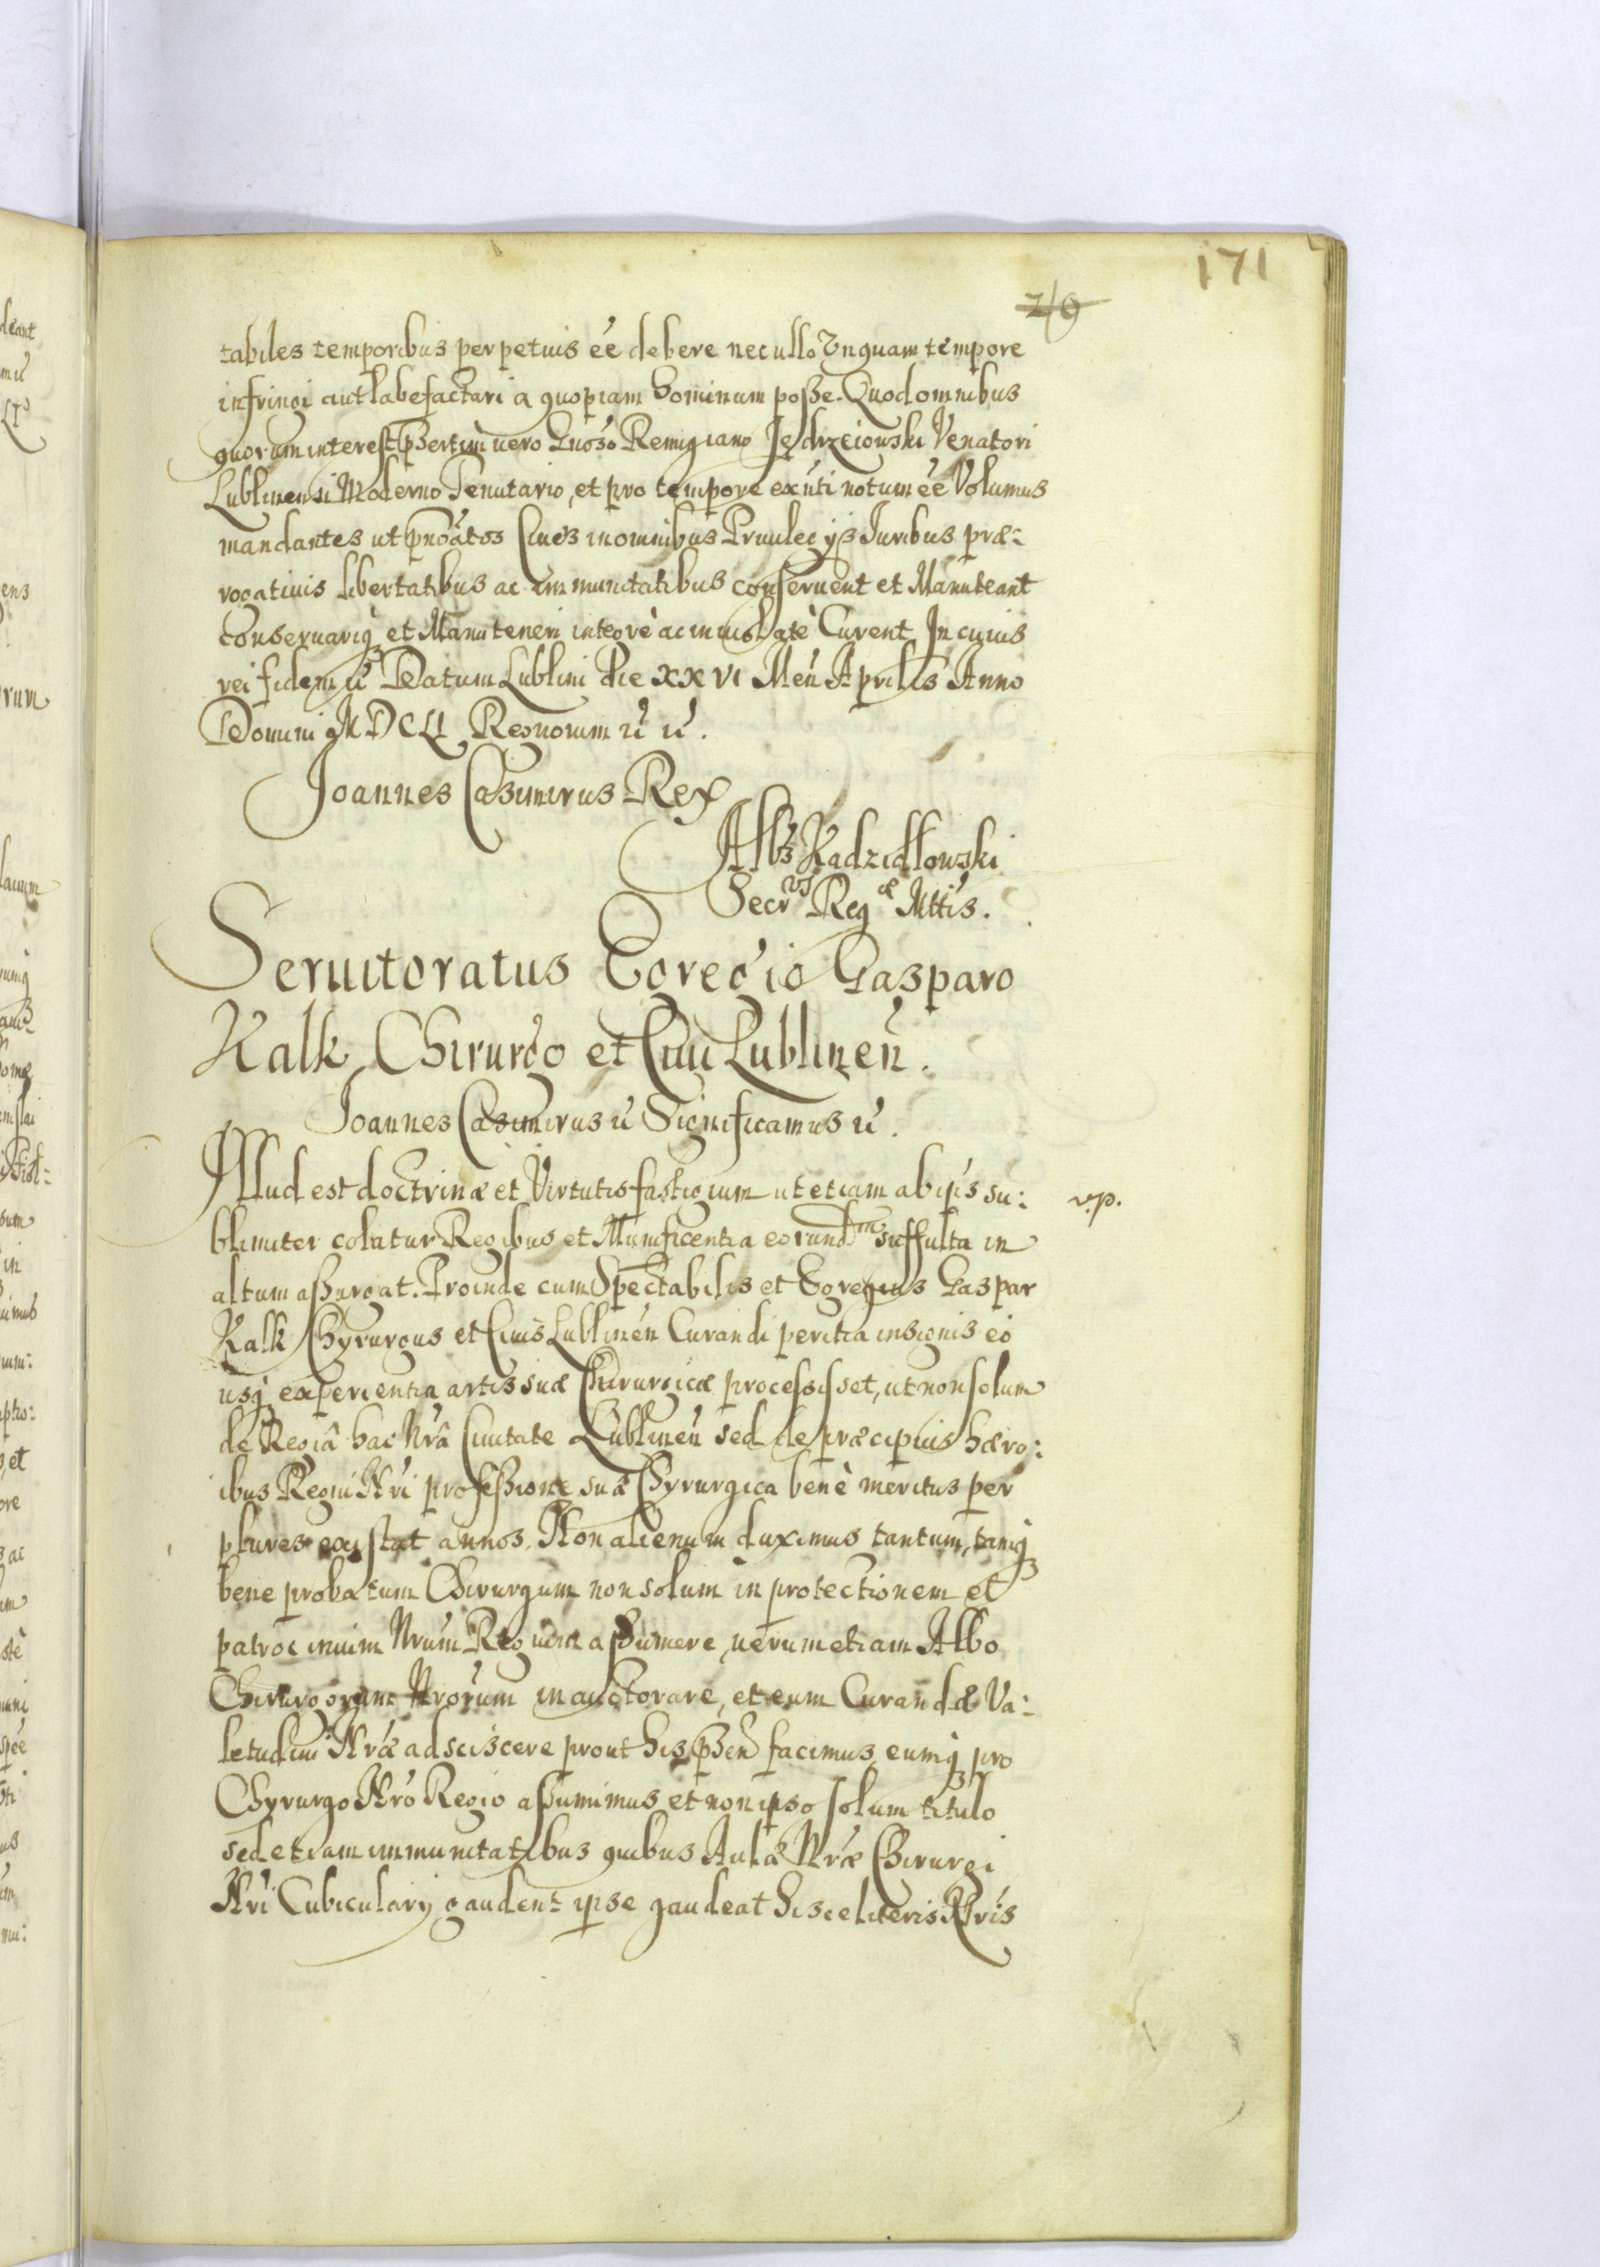 171
210
tabiles temporibus perpetuis eé debere nec ullo Vnquam tempore
infringi aut labefactari a quopiam hominum poße. Quod omnibus
quorum interest pßertim uero Gnoso Remigiano Jędrzeiowski Venatori
Lublinensi Moderno Tenutario, et pro tempore exńti notum eé Volumus
mandantes ut pnoátos Ciues in omnibus Priuilegijs Iuribus præ:
rogatiuis libertatibus ac immunitatibus conseruent et Manuteant
conseruariq et Manuteneri integrè ac inuiolatè Curent, In cuius
rei fidem ẽ Datum Lublini die XXVI Meń Aprilis Anno
Domini MDCLI Regnorum ẽ ẽ.
Joannes Casimirus Rex
Albs Kadzidłowski
Secrus Regæ Mttis.
Seruitoratus Egregio Gasparo
Kalk Chirurgo et Ciui Lublineń.
Joannes Casimirus ẽ Significamus ẽ.
Illud est doctrinæ et Virtutis fastigium ut etiam ab ipis su: v.p.
blimiter colatur Regibus et Munificentia eorundm suffulta in
altum aßurgat. Proinde cum Spectabilis et Egregius Gaspar
Kalk Chyrurgus et Ciuis Lublineń Curandi peritia insignis eó
usq experientia artis suæ Chirurgicæ processisset, ut non solum
de Regiâ hac Nrâ Ciuitate Lublineń sed de præcipuis hæro:
ibus Regni Nri profeßione suâ Chyrurgica benè meritus per
plures existat annos. Non alienum duximus tantum, tamq
bene probatum Chirurgum non solum in protectionem et
patrocinium Nrum Regium aßumere, uerum etiam Albo
Chirurgorum Nrorum inauctorare, et eum Curandæ Va:
letudini Nræ adsciscere prout his pßen facimus, eumq pro
Chyrurgo Nro Regio aßumimus et non ipso solum titulo
sed etiam immunitatibus quibus Aulæ Nræ Chirurgi
Nri Cubicularij gaudent ipse gaudeat hisce literis Nris